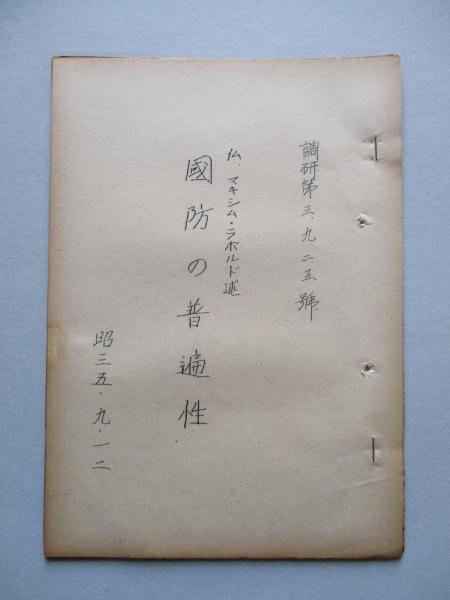 調研第三、九二五號
仏、マキシム・ラボルド述
國防の普遍性
昭三五・九・一二